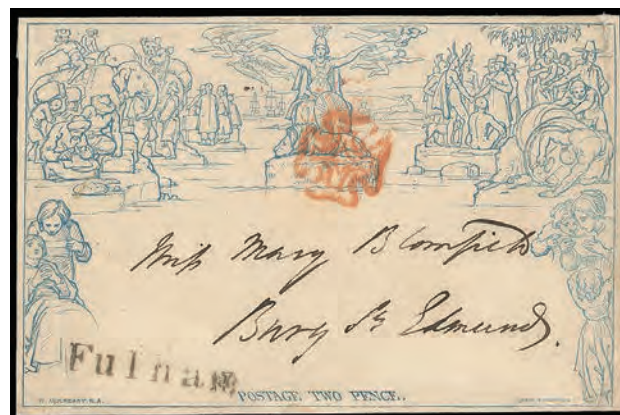 Miss Mary Blomfield
Bury St Edmunds.
Fulham
POSTAGE TWO PENCE.
W. MULREADY. R.A.